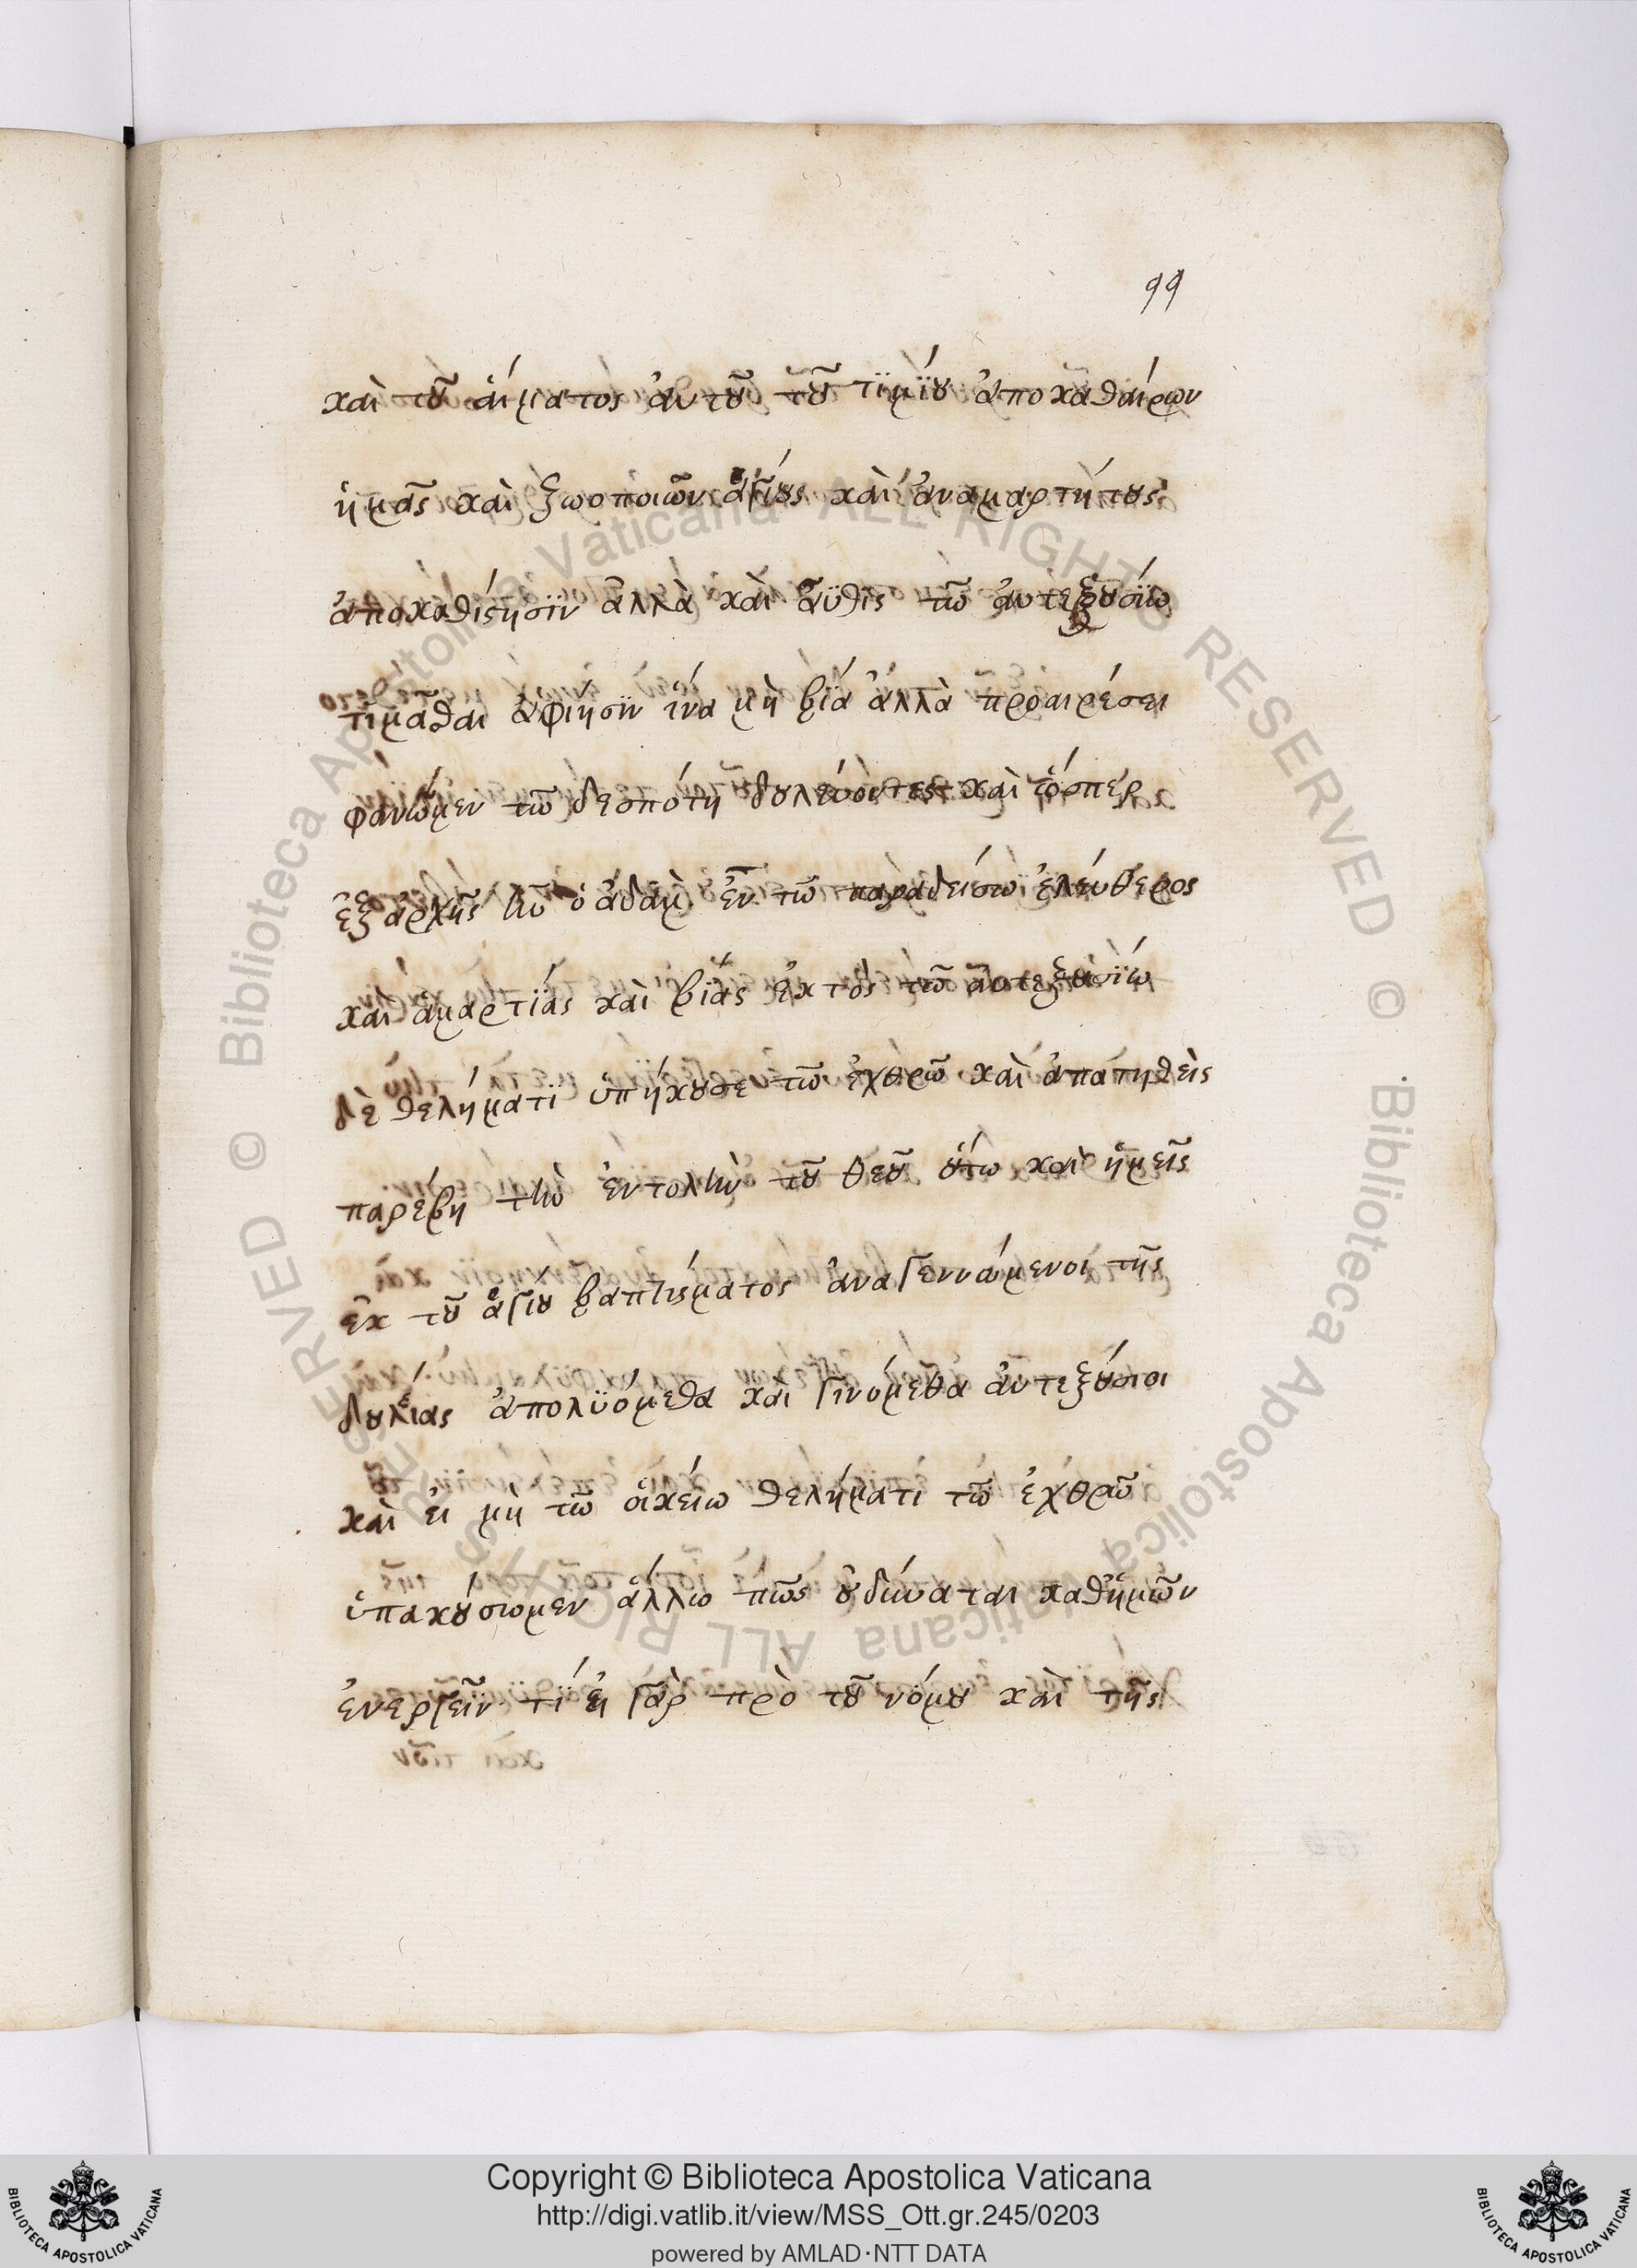 99
καὶ τοῦ ἅιματος ἀυτοῦ τοῦ τϊμΐου ἀποκαθάιρων
ἡμᾶς καὶ ζωοποιῶν ἁγίους καὶ ἀναμαρτήτους
ἀποκαθίστησϊν ἀλλὰ καὶ ἆυθις τῶ ἀυτεξουσΐω
τιμᾶσθαι ἀφίησϊν ἵνα μὴ βΐα ἀλλὰ προαιρέσει
φανῶμεν τῶ δεσπότη δουλεύοντες καὶ ὥσπερ
ἐξ ἀρχῆς ἦν ὁ ἀδὰμ ἐν τῶ παραδείσω ἐλεύθερος
καὶ ἁμαρτΐας καὶ βΐας ἐκτὸς τῶ ἀυτεξουσΐω
δὲ θελήματϊ ὑπήκουσε τῶ ἐχθρῶ καὶ ἀπατηθεὶς
παρέβη τὴν ἐντολὴν τοῦ θεοῦ οὕτω καὶ ἡμεῖς
ἐκ τοῦ ἁγίου βαπτίσματος ἀναγεννώμενοι τῆς
δουλείας ἀπολϋόμεθα καὶ γινόμεθα ἀυτεξούσιοι
καὶ ἐι μὴ τῶ ὀικείω θελήματι τῶ ἐχθρῶ
ὑπακούσωμεν ἄλλω πῶς οὐ δύναται καθ ἡμῶν
ἐνεργεῖν τΐ ἐι γὰρ πρὸ τοῦ νόμου καὶ τῆς
Copyright © Biblioteca Apostolica Vaticana
http://digi.vatlib.it/view/MSS_Ott.gr.245/0203
powered by AMLAD·NTT DATA
BIBLIOTECA APOSTOLICA VATICANA
BIBLIOTECA APOSTOLICA VATICANA